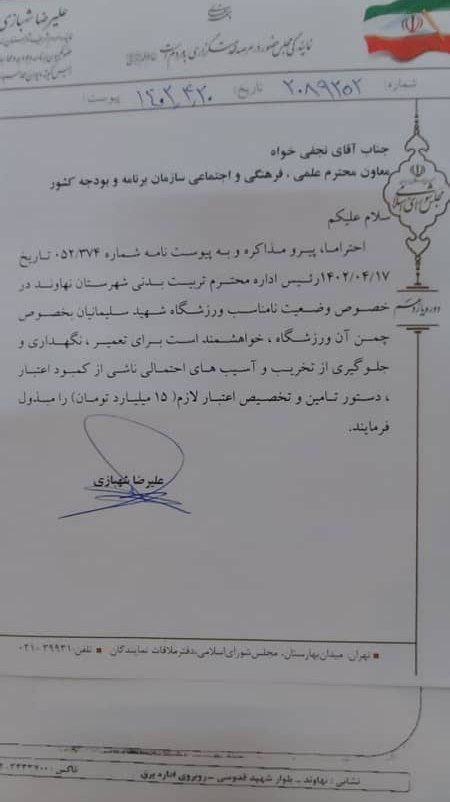 علیرضا شهبازی
نمایندگی مجلس حضور در عرصه خدمتگزاری به مردم است
شماره: ۲۰۸۹۲۵۲ تاریخ: ۱۴۰۲,۴,۲۰ پیوست:
جناب آقای نجفی خواه
معاون محترم علمی ، فرهنگی و اجتماعی سازمان برنامه و بودجه کشور
سلام علیکم
مجلس شورای اسلامی
احتراما، پیرو مذاکره و به پیوست نامه شماره ۰۵۲,۳۷۴ تاریخ
۱۴۰۲/۰۴/۱۷ رئیس اداره محترم تربیت بدنی شهرستان نهاوند در
خصوص وضعیت نامناسب ورزشگاه شهید سلیمانیان بخصوص
دوره یازدهم
چمن آن ورزشگاه ، خواهشمند است برای تعمیر ، نگهداری و
جلوگیری از تخریب و آسیب های احتمالی ناشی از کمبود اعتبار
، دستور تامین و تخصیص اعتبار لازم( ۱۵ میلیارد تومان) را مبذول
فرمایند.
علیرضا شهبازی
تهران، میدان بهارستان، مجلس شورای اسلامی، دفتر ملاقات نمایندگان ■ تلفن: ۳۹۹۳۱-۰۲۱
نشانی : نهاوند - بلوار شهید قدوسی - روبروی اداره برق